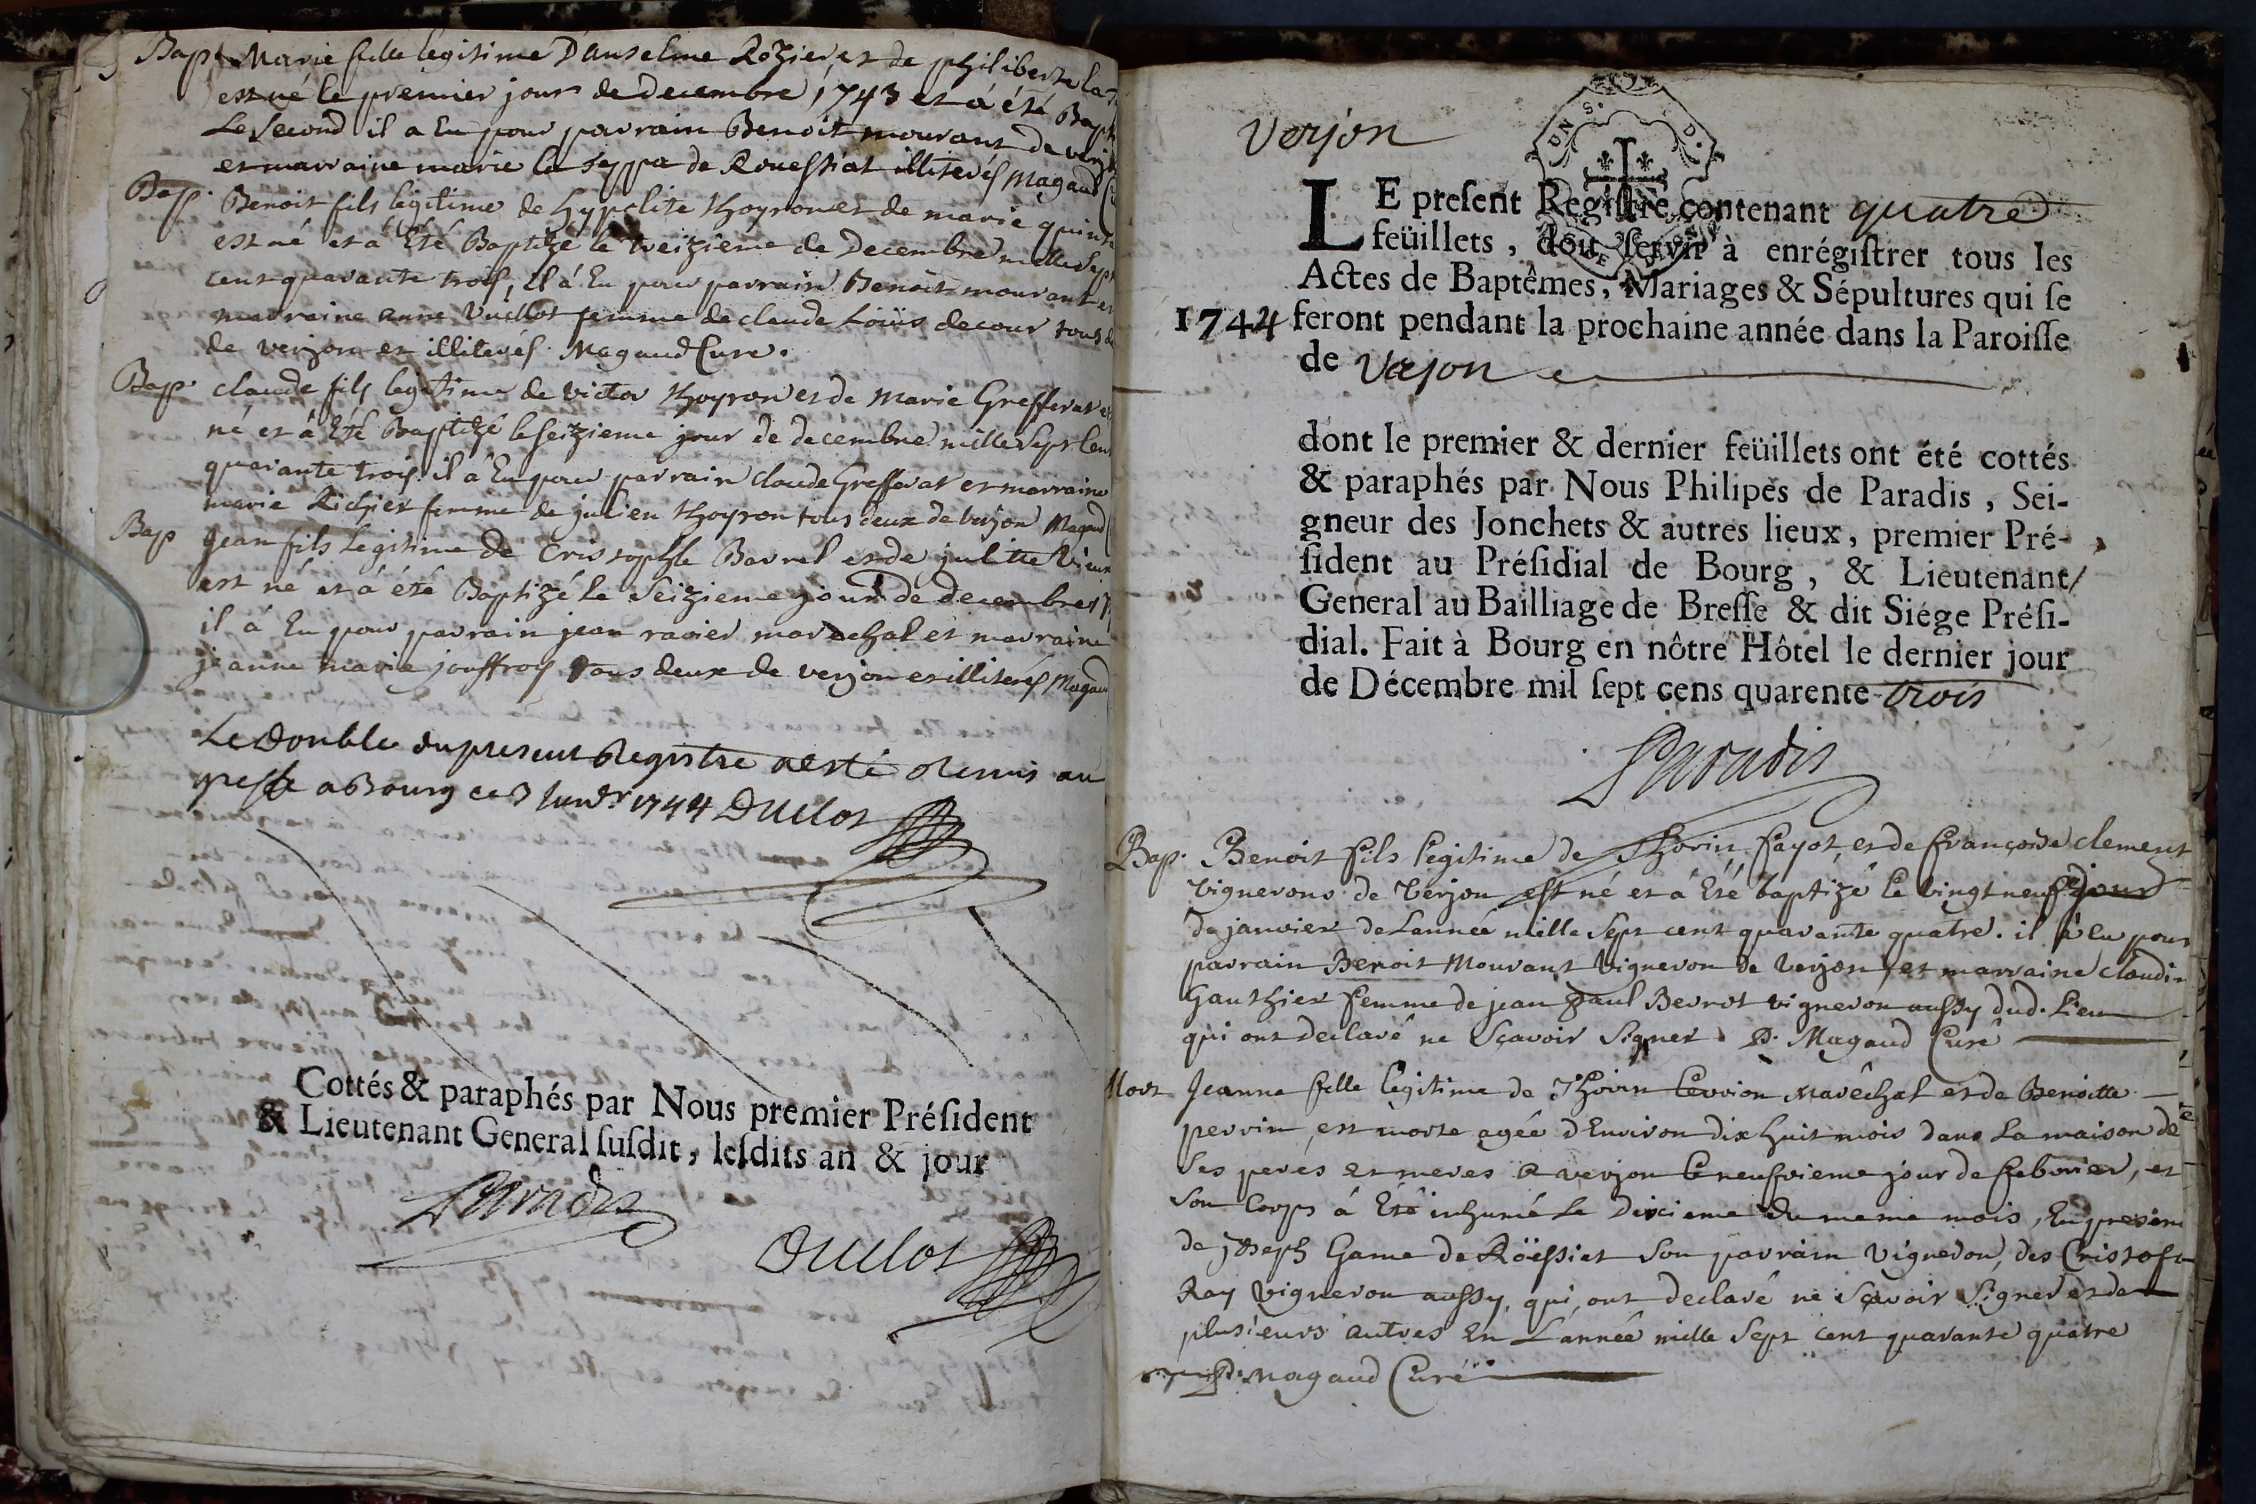 Bapt Marie fille legitime D'anselme Rozier, et de philiberte la
est né le premier jour de decembre 1743 et á été Bapti
Le second il a Eu pour parrain Benoit mourant de verj
et marraine marie la de Rouessiat illiterés Magaud Cu
Bap. Benoit fils legitime de hypolite thoyron et de marie
est né et á Eté Baptizé le treizieme de Decembre mille sept
cent quarante trois, il á Eu pour parrain Benoit mourant et
marraine anne Vuillot femme de claude Loüis decour tous d
de verjon et illiterés. Magaud Cure.
Bap. claude fils legitime de victor thoyron et de Marie Grefferat e
né et á Eté Baptizé le seizieme jour de decembre mille sept Cent
quarante trois il á Eu pour parrain claude Grefferat et marraine
marie Richier femme de julien thoyron tous deux de verjon Magaud
Bap jean fils legitime de Cristophle Barrel et de julitte Vieux
est né et á été Baptizé le seizieme jour de decembre 17
il á Eu pour parrain jean ravier marechal et marraine
jeanne marie jouffroy tous deux de verjon et illiterés Magaud
Le double du present Registre a esté remis au
greffe a Bourg ce 3 1744 Duclot
Cottés & paraphés par Nous premier Préſident
& Lieutenant General ſuſdit, leſdits an & jour
Paradis
Duclot
Verjon
LE preſent Regiſtre contenant quatre
feüillets, doit ſervir à enrégiſtrer tous les
Actes de Baptêmes, Mariages & Sépultures qui ſe
1744 feront pendant la prochaine année dans la Paroiſſe
de Verjon
dont le premier & dernier feüillets ont été cottés
& paraphés par Nous Philipes de Paradis, Sei-
gneur des Jonchets & autres lieux, premier Pré-
ſident au Préſidial de Bourg, & Lieutenant
General au Bailliage de Breſſe & dit Siége Préſi-
dial. Fait à Bourg en nôtre Hôtel le dernier jour
de Décembre mil ſept cens quarente trois
Paradis
Bap. Benoit fils legitime de Thorin fayot, et de françoise clement
vignerons de Verjon est né et á Eté baptizé le vingt neuf jour
de janvier de L'année mille sept cent quarante quatre. il á eu pour
parrain Benoit Mourant vigneron de verjon, et marraine claudin
Gauthier femme de jean paul Berrot vigneron aussy dud. Lieu
qui ont declaré ne sçavoir signer. P. Magaud Curé
Mort Jeanne fille legitime de Thorin Cervion Marêchal et de Benoitte
perrin, est morte agée d'Environ dix huit mois dans La maison de
ses perés et meres a verjon le neufvieme jour de febvrier, et
son Corps á Eté inhumé Le Dixieme du meme mois, En presen
de joseph Game de Roüessiet son parrain vigneron, des Cristofe
Ray vigneron aussy, qui, ont declaré ne sçavoir signer et de
plusieurs autres En L'année mille sept cent quarante quatre
P. Magaud Curé